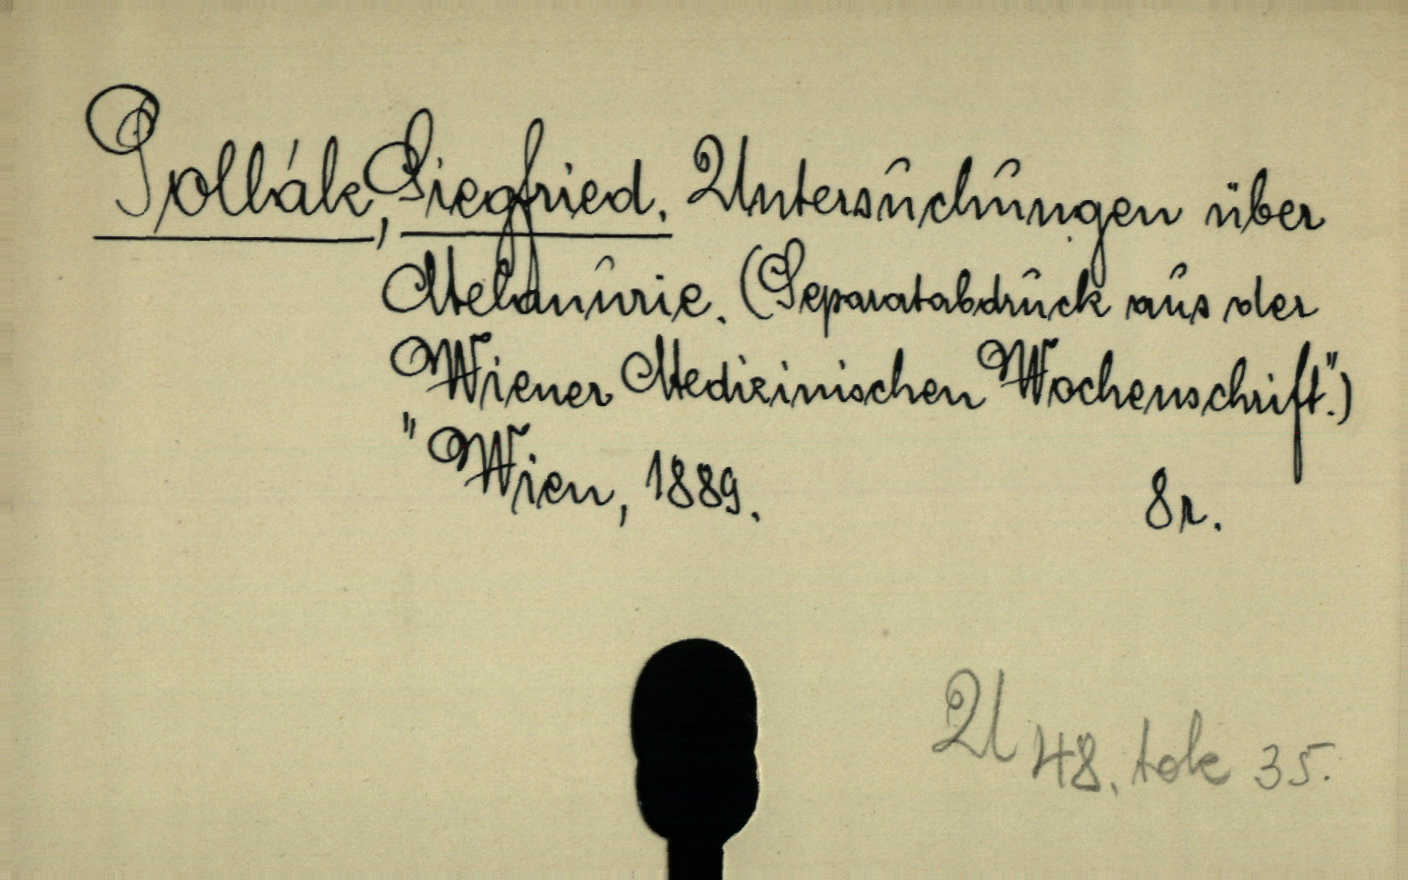 Pollák, Siegfried. Untersuchungen über
Melanurie. (Separatabdruck aus der
Wiener Medizinischen Wochenschrift".)
"Wien, 1889. 8r.
U 48. tok 35.